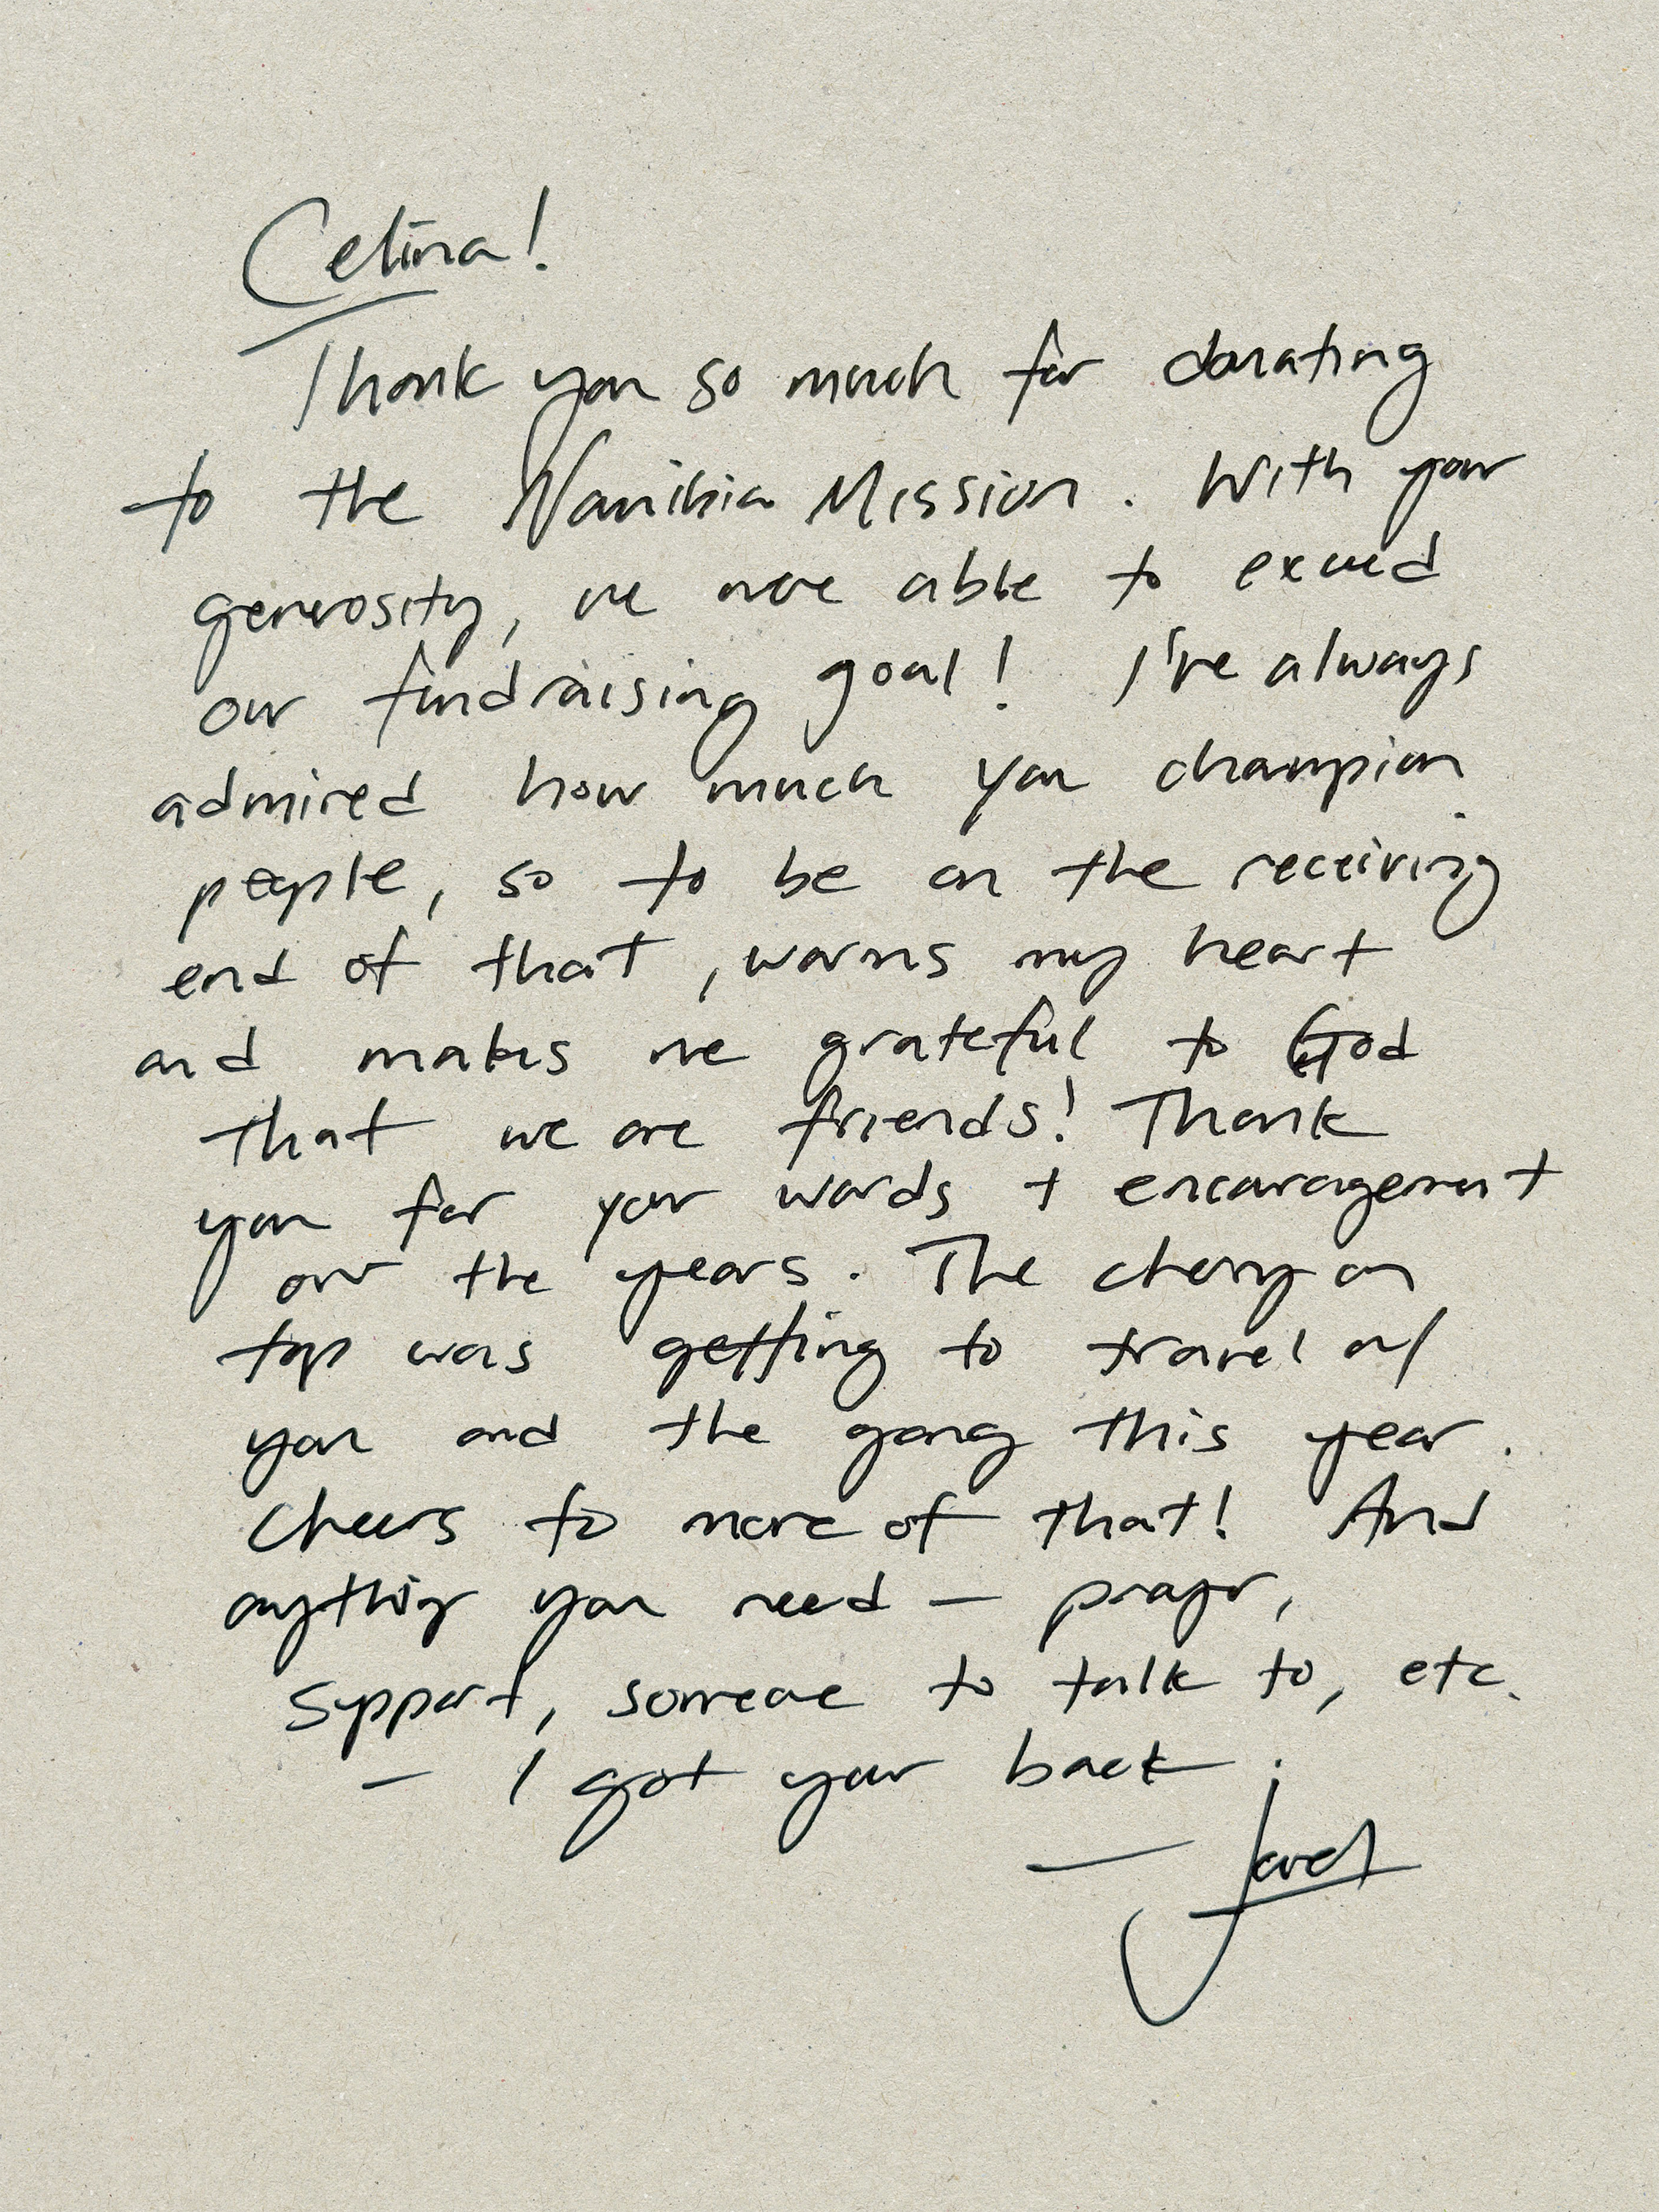 Celina!
Thank you so much for donating
to the Namibia Mission. With your
generosity, we were able to exceed
our fundraising goal! I've always
admired how much you champion
people, so to be on the receiving
end of that, warms my heart
and makes me grateful to God
that we are friends! Thank
you for your words + encouragement
over the years. The cherry on
top was getting to travel w/
you and the gang this year.
Cheers to more of that! And
anything you need — prayer,
support, someone to talk to, etc.
— I got your back.
— Jaret